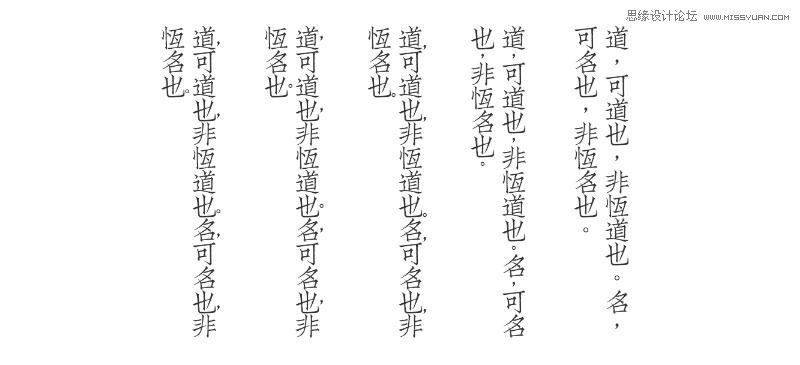 思缘设计论坛 WWW.MISSYUAN.COM
道，可道也，非恆道也。名，
可名也，非恆名也。
道，可道也，非恆道也。名，可名
也，非恆名也。
道，可道也，非恆道也。名，可名也，非
恆名也。
道，可道也，非恆道也。名，可名也，非
恆名也。
道，可道也，非恆道也。名，可名也，非
恆名也。